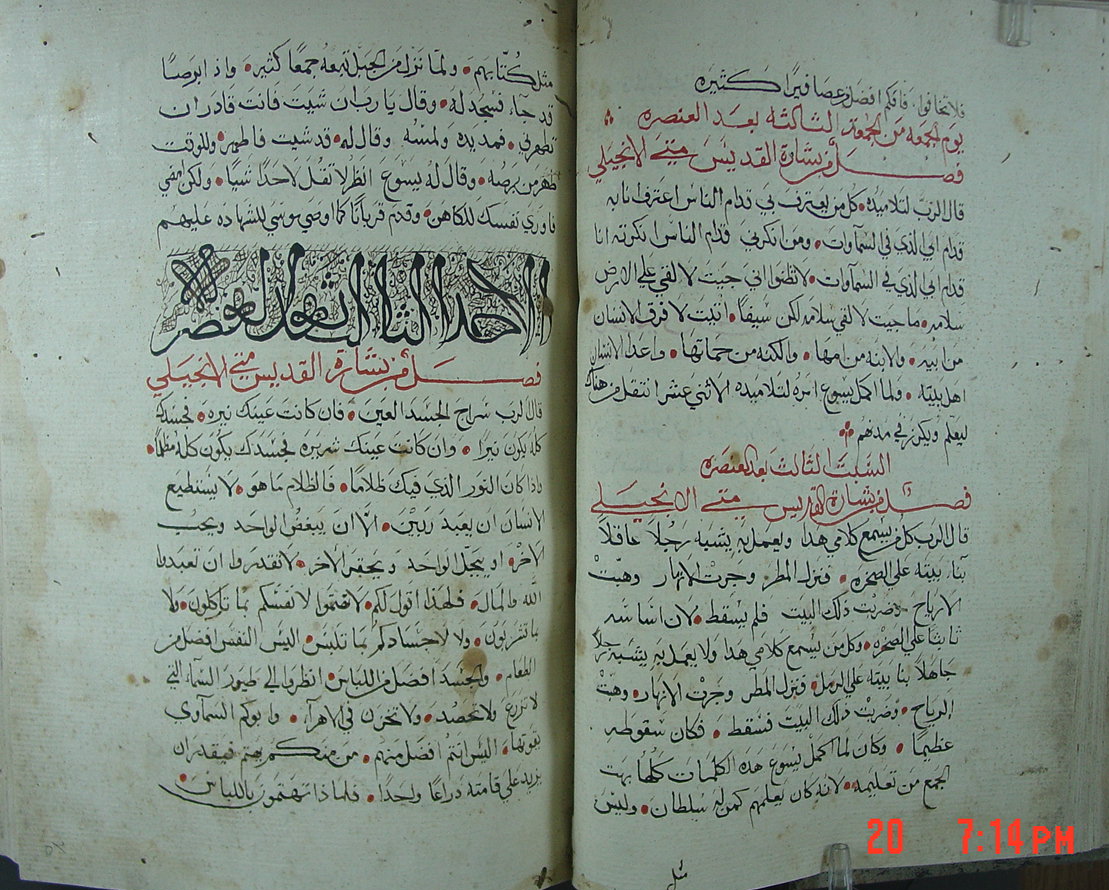 فلا تخافوا، فانكم افضل من عصافير كثيره
يوم الجمعه من الجمعة الثالثه بعد العنصره
فصل من بشارة القديس متى الانجيلي
قال الرب لتلاميذه • كل من يعترف بي قدام الناس اعترف انا به
قدام ابي الذي في السماوات • ومن انكرني قدام الناس انكرته انا
قدام ابي الذي في السماوات • لا تظنوا اني جيت لالقي على الارض
سلامه • ما جيت لالقي سلامه لكن سيفا • اتيت لافرق الانسان
من ابيه • والابنه من امها • والكنه من حماتها • واعدا الانسان
اهل بيته • ولما اكمل يسوع امره لتلاميذه الاثني عشر انتقل من هناك
ليعلم ويكرز في مدنهم
السبت الثالث بعد العنصره
فصل من بشارة القديس متى الانجيلي
قال الرب كل من يسمع كلامي هذا ويعمل به يشبه رجلا عاقلا
بنا بيته على الصخره • فنزل المطر وجرت الانهار وهبت
الارياح وضربت ذلك البيت فلم يسقط • لان اساسه
ثابتا على الصخره • وكل من يسمع كلامي هذا ولا يعمل به يشبه رجلا
جاهلا بنا بيته على الرمل • فنزل المطر وجرت الانهار • وهبت
الرياح • وضربت ذلك البيت فسقط • فكان سقوطه
عظيما • وكان لما اكمل يسوع هذه الكلمات كلها بهت
الجمع من تعليمه • لانه كان يعلمهم كمن له سلطان • وليس
مثل
20 7:14 PM
مثل كتابهم • ولما نزل من الجبل تبعه جمعا كثير • واذ ابرصا
قد جاء فسجد له • وقال يا رب ان شيت فانت قادر ان
تطهرني • فمد يده ولمسه وقال له • قد شيت فاطهر • وللوقت
طهر من برصه • وقال له يسوع انظر لا تقل لاحد شيا • ولكن امضي
فاوري نفسك للكاهن • وقدم قربانا كما اوصى موسى للشهاده عليهم
الاحد الثالث بعد العنصره
فصل من بشارة القديس متى الانجيلي
قال الرب سراج الجسد العين • فان كانت عينك نيره • فجسدك
كله يكون نيرا • وان كانت عينك شريره فجسدك يكون كله مظلما •
واذا كان النور الذي فيك ظلاما • فالظلام ما هو • لا يستطيع
الانسان ان يعبد ربين • الا ان يبغض الواحد ويحب
الاخر • او يجل الواحد ويحقر الاخر • لا تقدروا ان تعبدوا
الله والمال • فلهذا اقول لكم • لا تهتموا لانفسكم بما تاكلون • ولا
ما تشربون • ولا لاجسادكم بما تلبس • اليس النفس افضل من
الطعام • والجسد افضل من اللباس • انظروا الى طيور السماء التي
لا تزرع ولا تحصد • ولا تخزن في الاهراء • وابوكم السماوي
يقوتها • اليس انتم افضل منهم • من منكم يهتم فيقدر ان
يزيد على قامته ذراعا واحدا • فلماذا تهتمون باللباس •